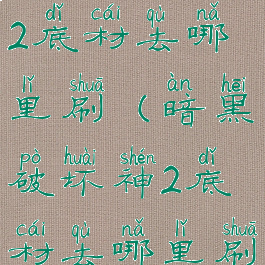 dǐ cái qù nǎ
2底材去哪
lǐ shuā àn hēi
里刷(暗黑
pò huài shén dǐ
破坏神2底
cái qù nǎ lǐ shuā
材去哪里刷